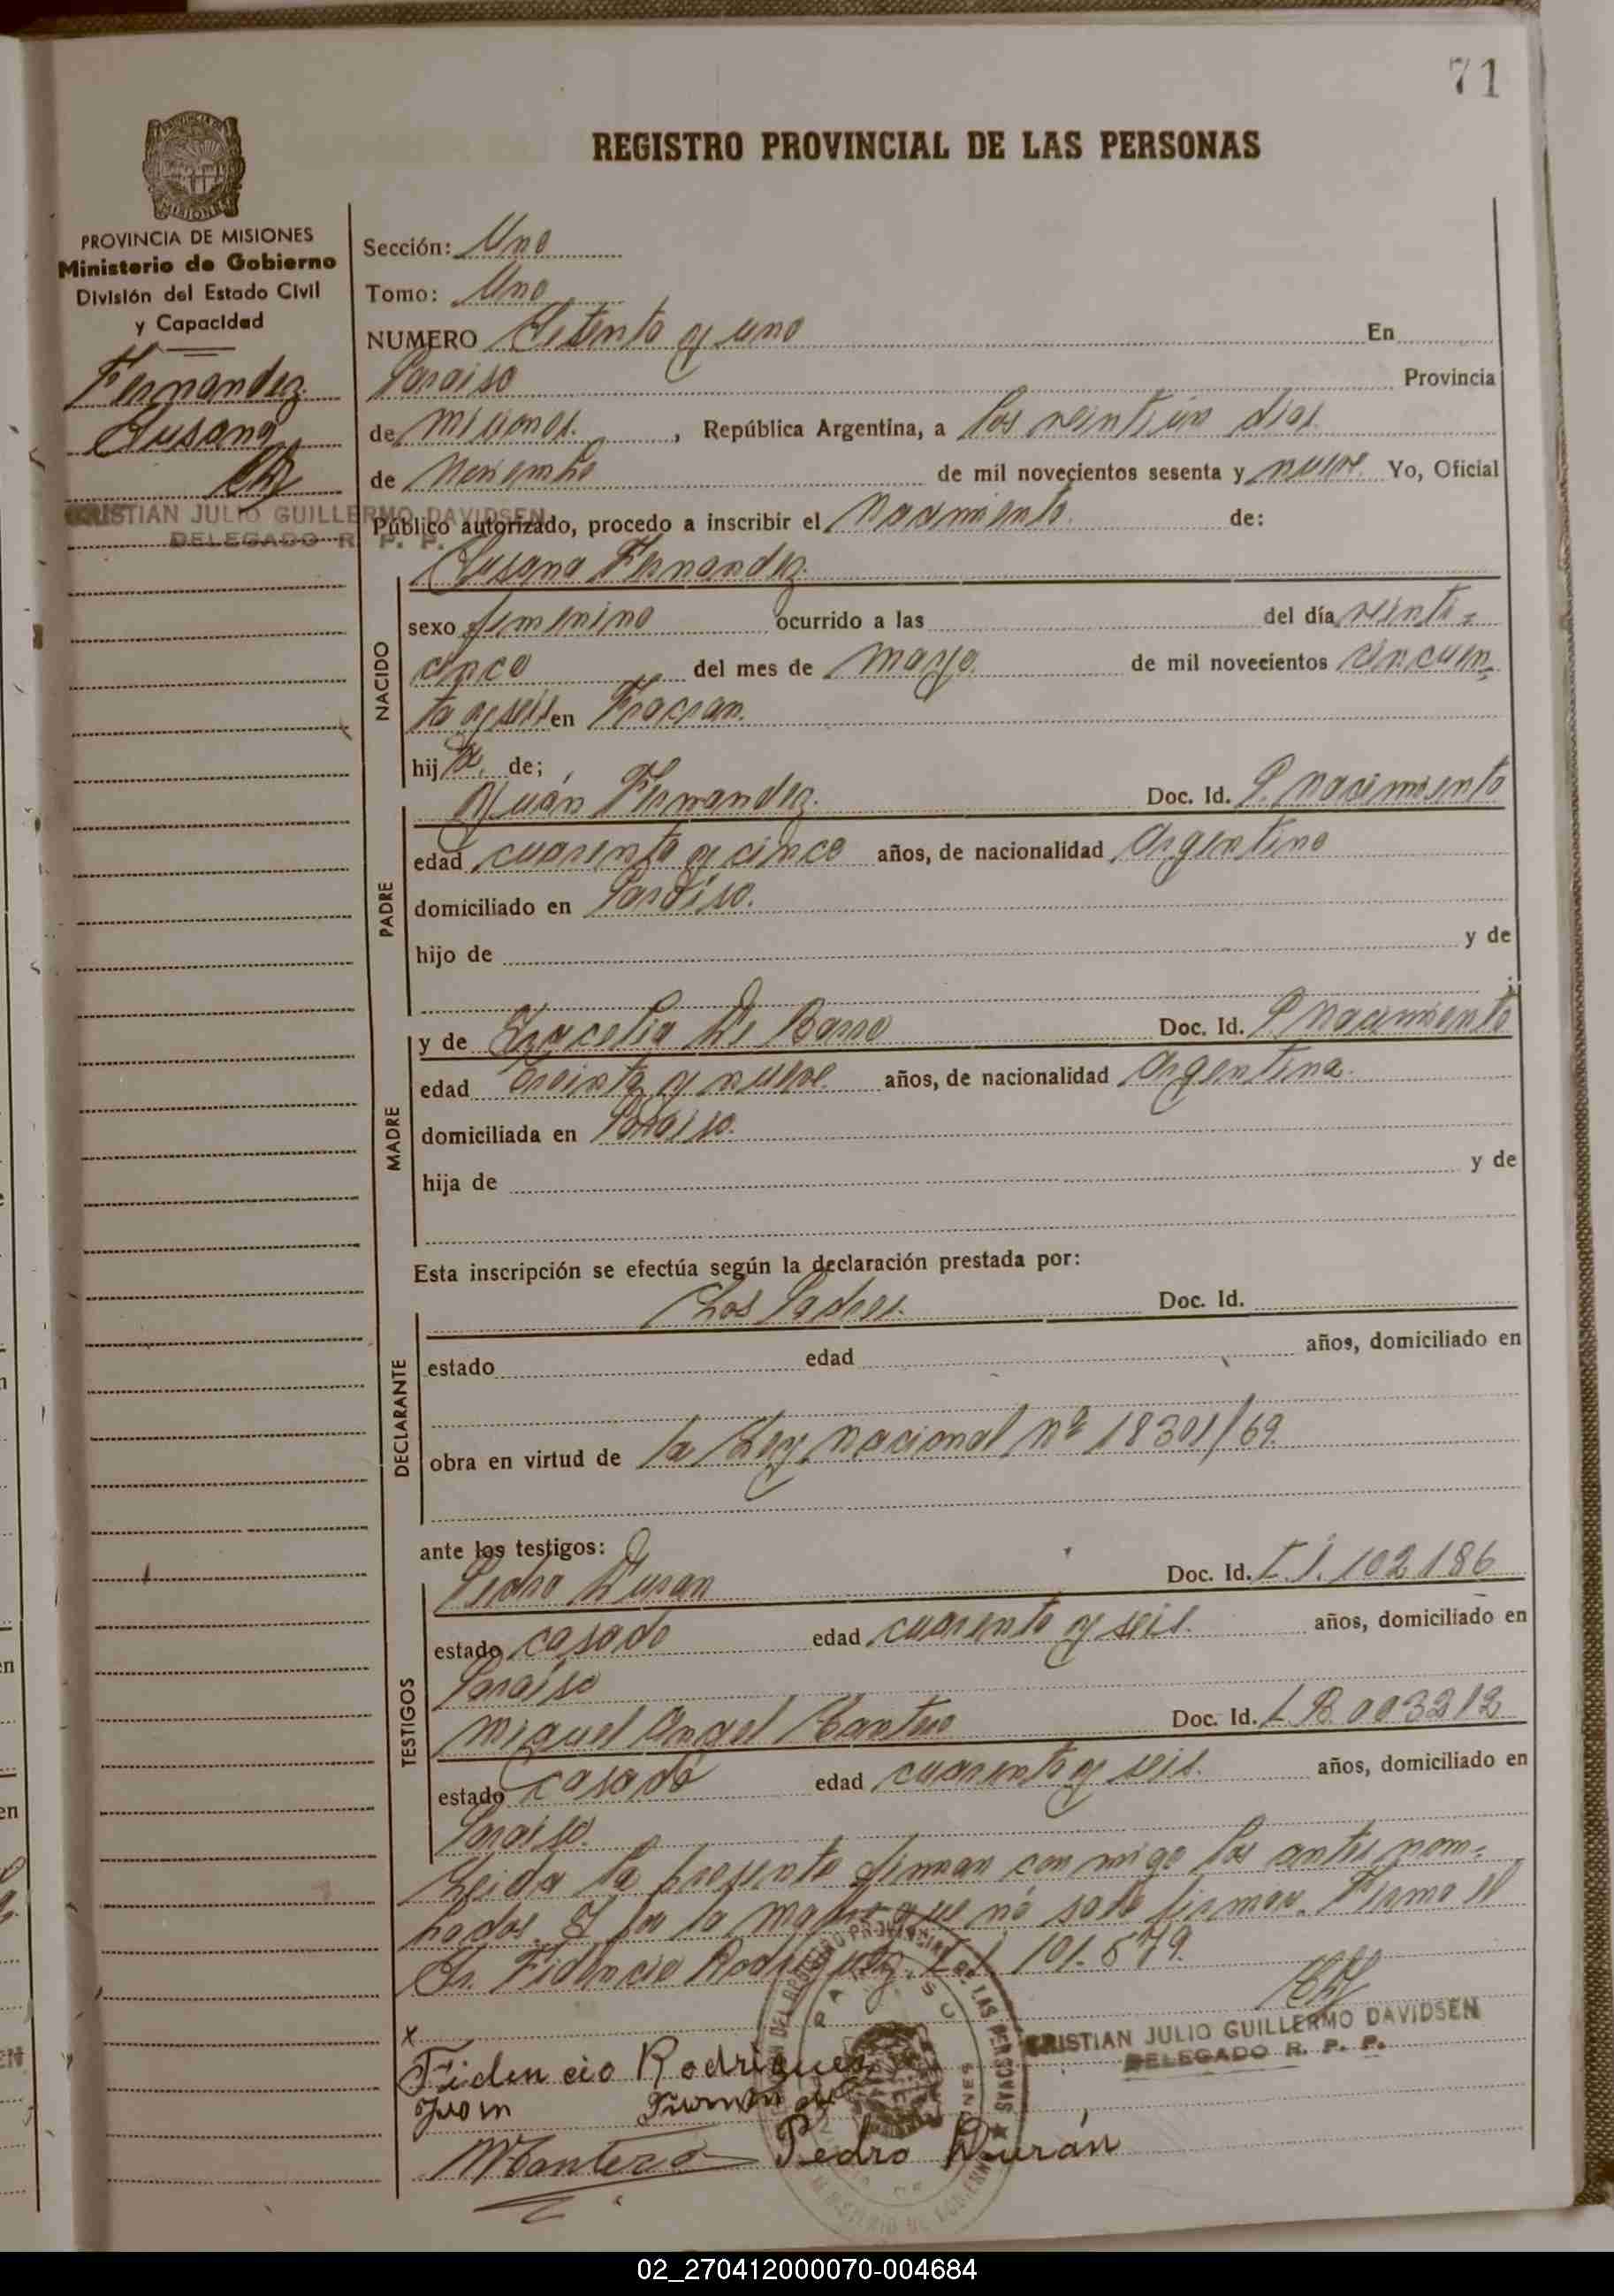 71
REGISTRO PROVINCIAL DE LAS PERSONAS
PROVINCIA DE MISIONES
Ministerio de Gobierno
División del Estado Civil
y Capacidad
Fernandez
Susana
CRISTIAN JULIO GUILLERMO DAVIDSEN
DELEGADO R. P. P.
Sección: Uno
Tomo: Uno
NUMERO Setenta y uno En
Paraiso Provincia
de Misiones. , República Argentina, a los veintiun dias
de Noviembre de mil novecientos sesenta y nueve Yo, Oficial
Público autorizado, procedo a inscribir el Nacimiento. de:
Susana Fernandez.
NACIDO
sexo femenino ocurrido a las del día veinti-
cinco del mes de mayo. de mil novecientos cincuen-
ta y seis en Fracran.
hija, de;
PADRE
Juán Fernandez. Doc. Id. P. nacimiento
edad cuarenta y cinco años, de nacionalidad Argentino
domiciliado en Paraíso.
hijo de y de
MADRE
y de De Doc. Id. P. Nacimiento
edad treinta y nueve años, de nacionalidad Argentina.
domiciliada en Paraiso.
hija de y de
Esta inscripción se efectúa según la declaración prestada por:
DECLARANTE
Los Padres. Doc. Id.
estado edad años, domiciliado en
obra en virtud de la Ley nacional nº 18301/69
ante los testigos:
TESTIGOS
Pedro Duran Doc. Id. C.I. 102186
estado casado edad cuarenta y seis. años, domiciliado en
Paraíso
Miguel Angel Cantero Doc. Id. L.B. 003212
estado casado edad cuarenta y seis. años, domiciliado en
Paraiso.
Leida la presente firman con migo los antes nom-
brados. Y por la madre que nó sabe firmar. Firma el
Sr. Fidencio Rodriguez. C.I. 101.879.
x
Fidencio Rodriguez
Juan Fernandez
MCantero Pedro Durán
CRISTIAN JULIO GUILLERMO DAVIDSEN
DELEGADO R. P. P.
02_270412000070-004684